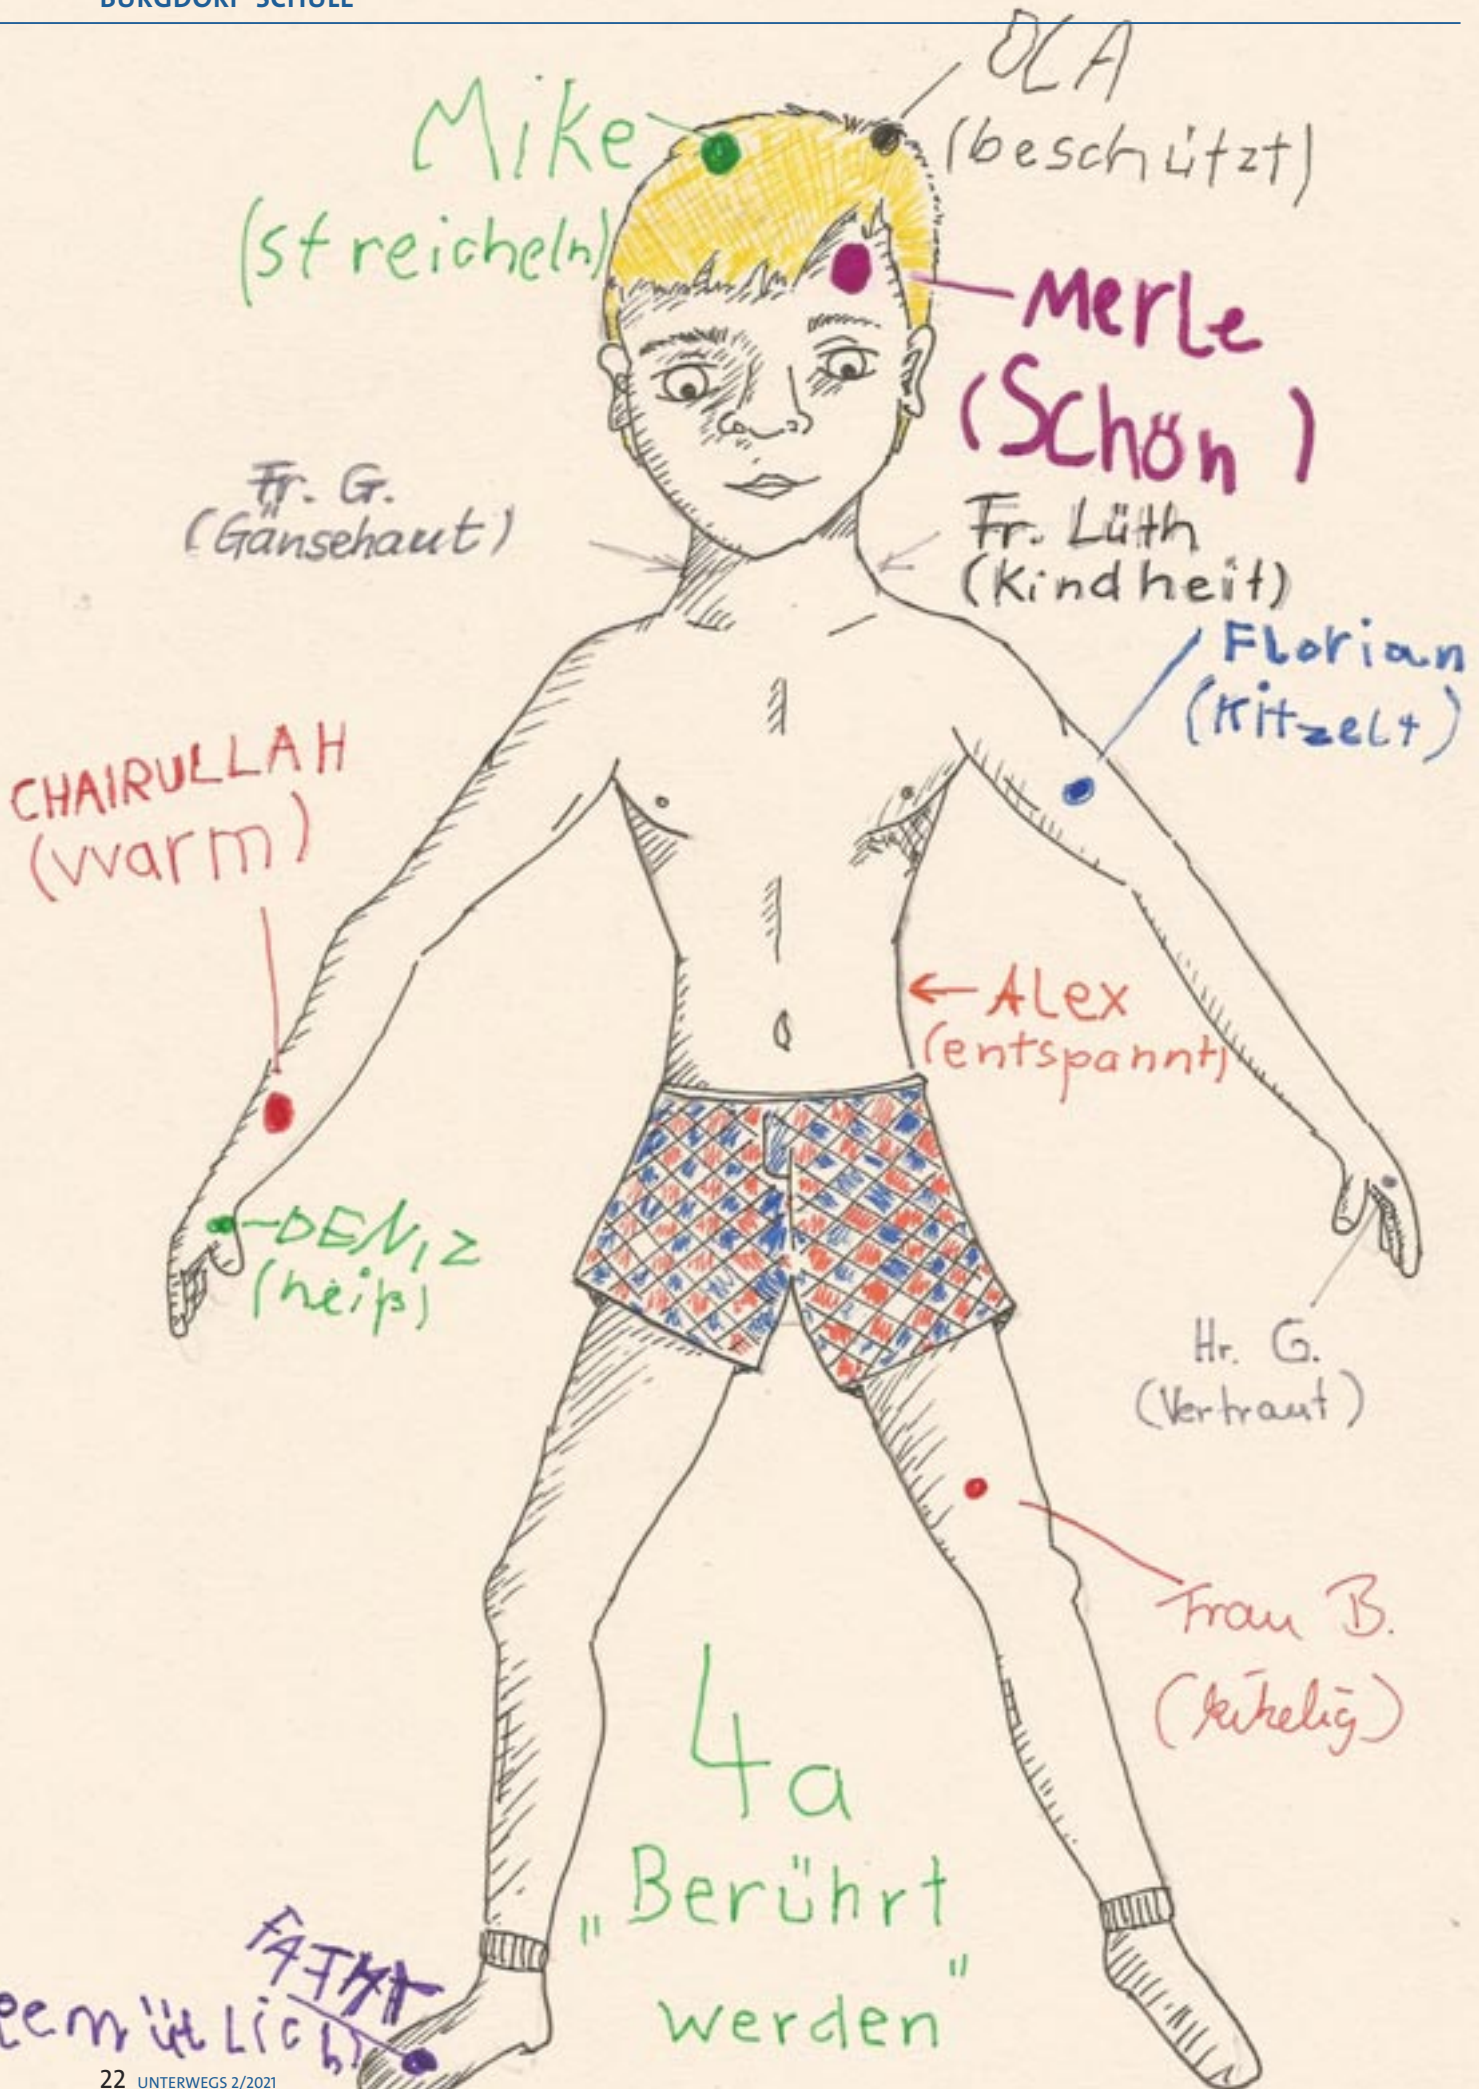 BURGDORF-SCHULE
OLA
(beschützt)
Mike
(streicheln)
Merle
(Schön)
Fr. G.
(Gänsehaut)
Fr. Lüth
(Kindheit)
Florian
(Kitzelt)
CHAIRULLAH
(warm)
ALex
(entspannt)
DENIZ
(heiß)
Hr. G.
(Vertraut)
Frau B.
(kikelig)
4a
„Berührt
werden"
gemütLich)
22 UNTERWEGS 2/2021